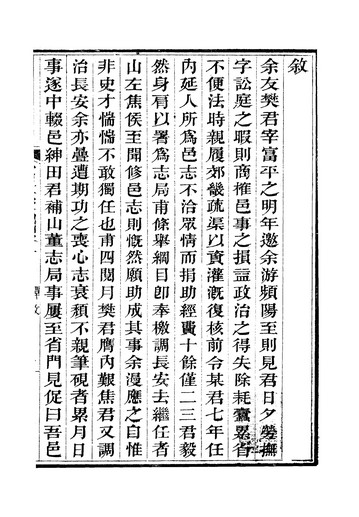 敘
余友樊君宰富平之明年邀余游頻陽至則見君日夕勞撫
字訟庭之暇則商榷邑事之損益政治之得失除耗蠹累省
不便法時親履郊畿疏渠以資灌漑復核前令某君七年任
內延人所爲邑志不洽眾情而捐助經費十餘僅二三君毅
然身肩以署爲志局甫條舉綱目卽奉檄調長安去繼任者
山左焦侯至聞修邑志則慨然願助成其事余漫應之自惟
非史才惴惴不敢獨任也甫四閱月樊君膺內艱焦君又調
治長安余亦疊遭期功之喪心志衰頹不親筆硯者累月日
事遂中輟邑紳田君補山董志局事屢至省門見促曰吾邑